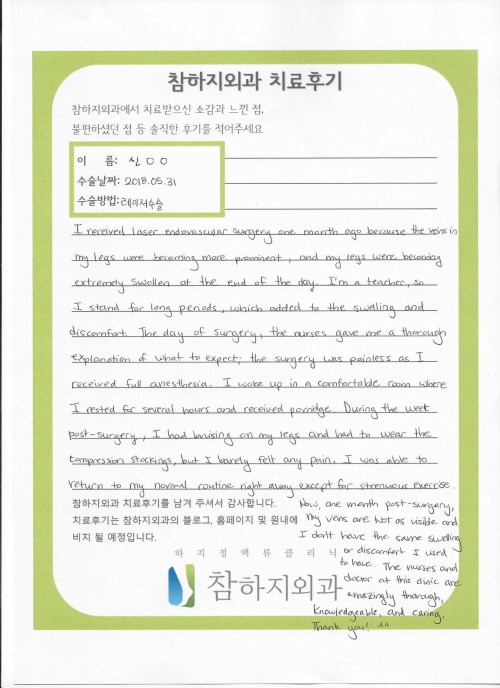 참하지외과 치료후기
참하지외과에서 치료받으신 소감과 느낀 점,
불편하셨던 점 등 솔직한 후기를 적어주세요
이 름: 신 O O
수술날짜: 2018.05.31
수술방법: 레이저수술
I received laser endovascular surgery one month ago because the veins in
my legs were becoming more prominent, and my legs were becoming
extremely swollen at the end of the day. I'm a teacher, so
I stand for long periods, which added to the swelling and
discomfort. The day of surgery, the nurses gave me a thorough
explanation of what to expect; the surgery was painless as I
received full anesthesia. I woke up in a comfortable room where
I rested for several hours and received porridge. During the week
post-surgery, I had bruising on my legs and had to wear the
compression stockings, but I barely felt any pain. I was able to
return to my normal routine right away except for strenuous exercise.
참하지외과 치료후기를 남겨 주셔서 감사합니다.
치료후기는 참하지외과의 블로그, 홈페이지 및 원내에
비치 될 예정입니다.
Now, one month post-surgery,
my veins are not as visible and
I don't have the same swelling
or discomfort I used
to have. The nurses and
doctor at this clinic are
amazingly thorough,
knowledgeable, and caring.
Thank you! ^^
하지정맥류클리닉
참하지외과